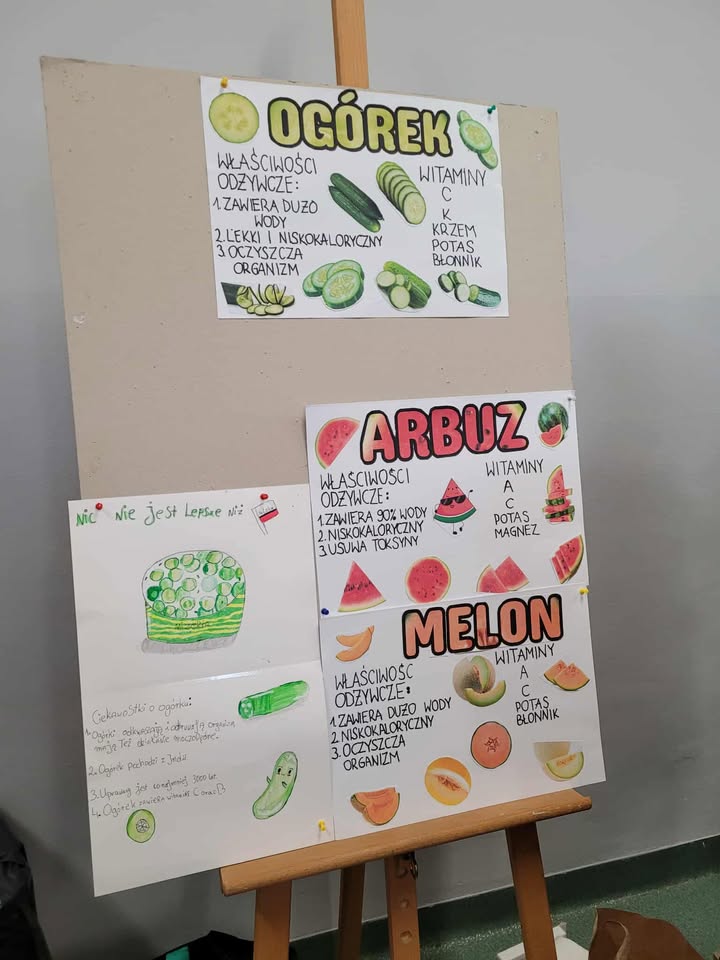 OGÓREK
WŁAŚCIWOŚCI
ODŻYWCZE:
1. ZAWIERA DUŻO
WODY
2. LEKKI I NISKOKALORYCZNY
3. OCZYSZCZA
ORGANIZM
WITAMINY
C
K
KRZEM
POTAS
BŁONNIK
ARBUZ
WŁAŚCIWOŚCI
ODŻYWCZE:
1. ZAWIERA 90% WODY
2. NISKOKALORYCZNY
3. USUWA TOKSYNY
WITAMINY
A
C
POTAS
MAGNEZ
MELON
WŁAŚCIWOŚC
ODŻYWCZE:
1. ZAWIERA DUŻO WODY
2. NISKOKALORYCZNY
3. OCZYSZCZA
ORGANIZM
WITAMINY
A
C
POTAS
BŁONNIK
Nic Nie jest Lepsze Niż
Ciekawostki o ogórku:
1. Ogórki odkwaszają i odtruwają organizm
mają Też działanie moczopędne.
2. Ogórek pochodzi z Indii.
3. Uprawiany jest co najmniej 3000 lat.
4. Ogórek zawiera witaminy C oraz B